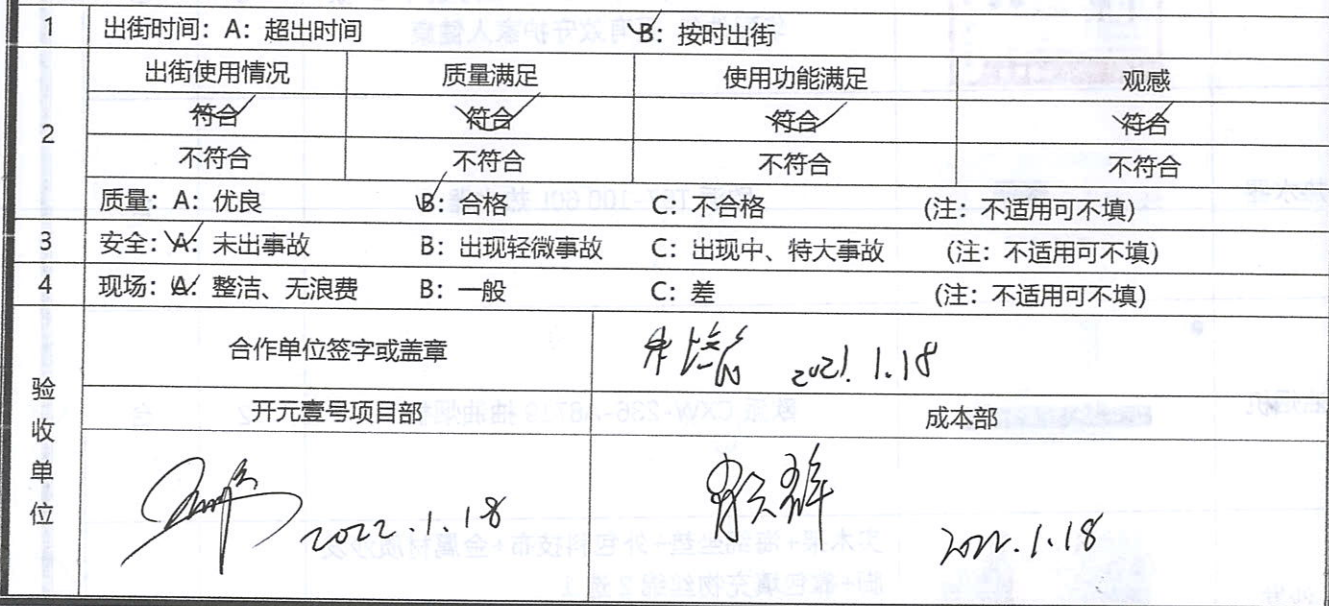 1 出街时间：A：超出时间 B：按时出街
出街使用情况 质量满足 使用功能满足 观感
2 符合 符合 符合 符合
不符合 不符合 不符合 不符合
质量：A：优良 B：合格 C：不合格 (注：不适用可不填)
3 安全：A：未出事故 B：出现轻微事故 C：出现中、特大事故 (注：不适用可不填)
4 现场：A：整洁、无浪费 B：一般 C：差 (注：不适用可不填)
验收单位
合作单位签字或盖章 2021.1.18
开元壹号项目部 成本部
2022.1.18 2022.1.18